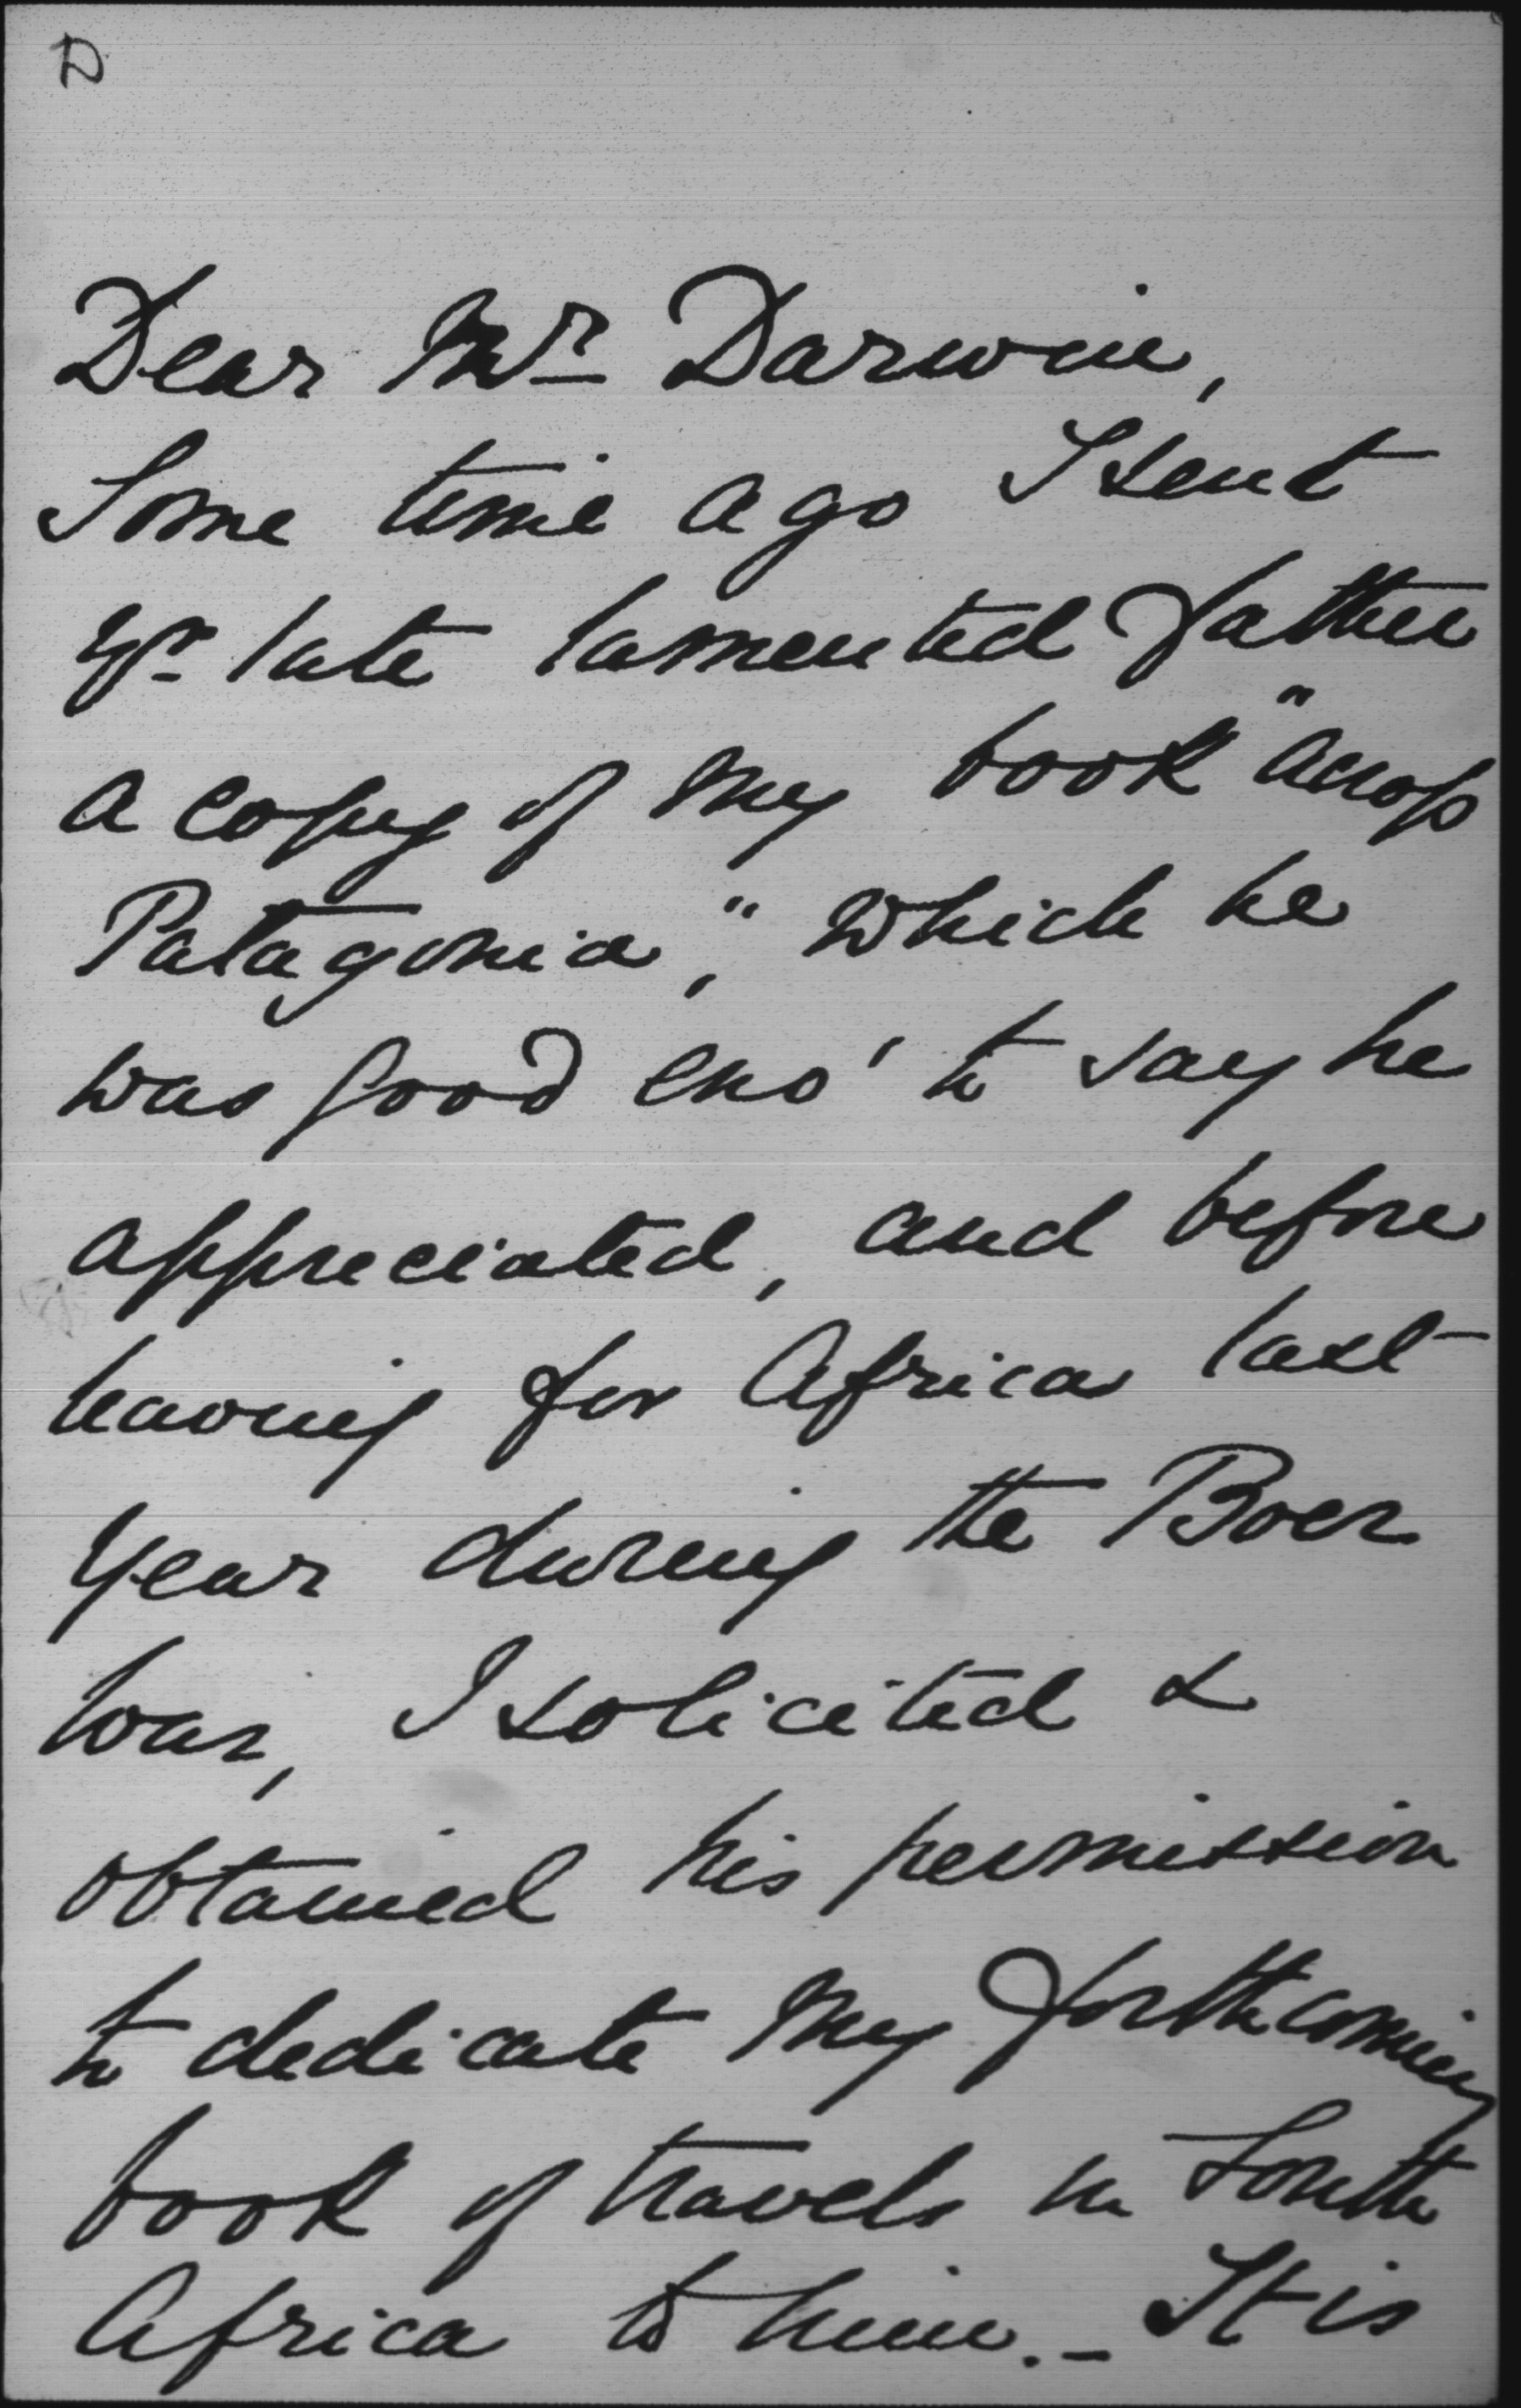 D
Dear Mr Darwin,
Some time ago I sent
yr late lamented father
a copy of my book "Across
Patagonia," which he
was good eno' to say he
appreciated, and before
leaving for Africa last
year during the Boer
War, I solicited &
obtained his permission
to dedicate my forthcoming
book of travels in South
Africa to him. – It is